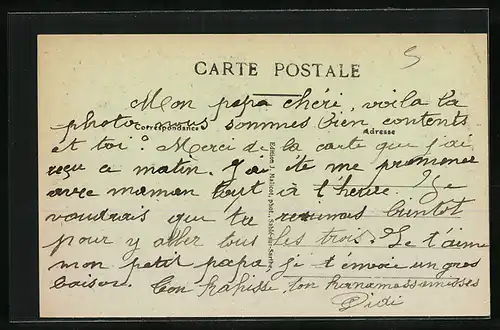 5
CARTE POSTALE
Mon papa chéri, voila ta
photo nous sommes bien contents
Correspondance
Adresse
et toi? Merci de la carte que j'ai
reçu ce matin. J'ai été me promener
avec maman tout à l'heure. Je
voudrais que tu reviennes bientot
pour y aller tous les trois. Je t'aime
mon petit papa, je t'envoie un gros
baiser. Ton
Didi
Edition J. Malicot, phot., Sablé-sur-Sarthe